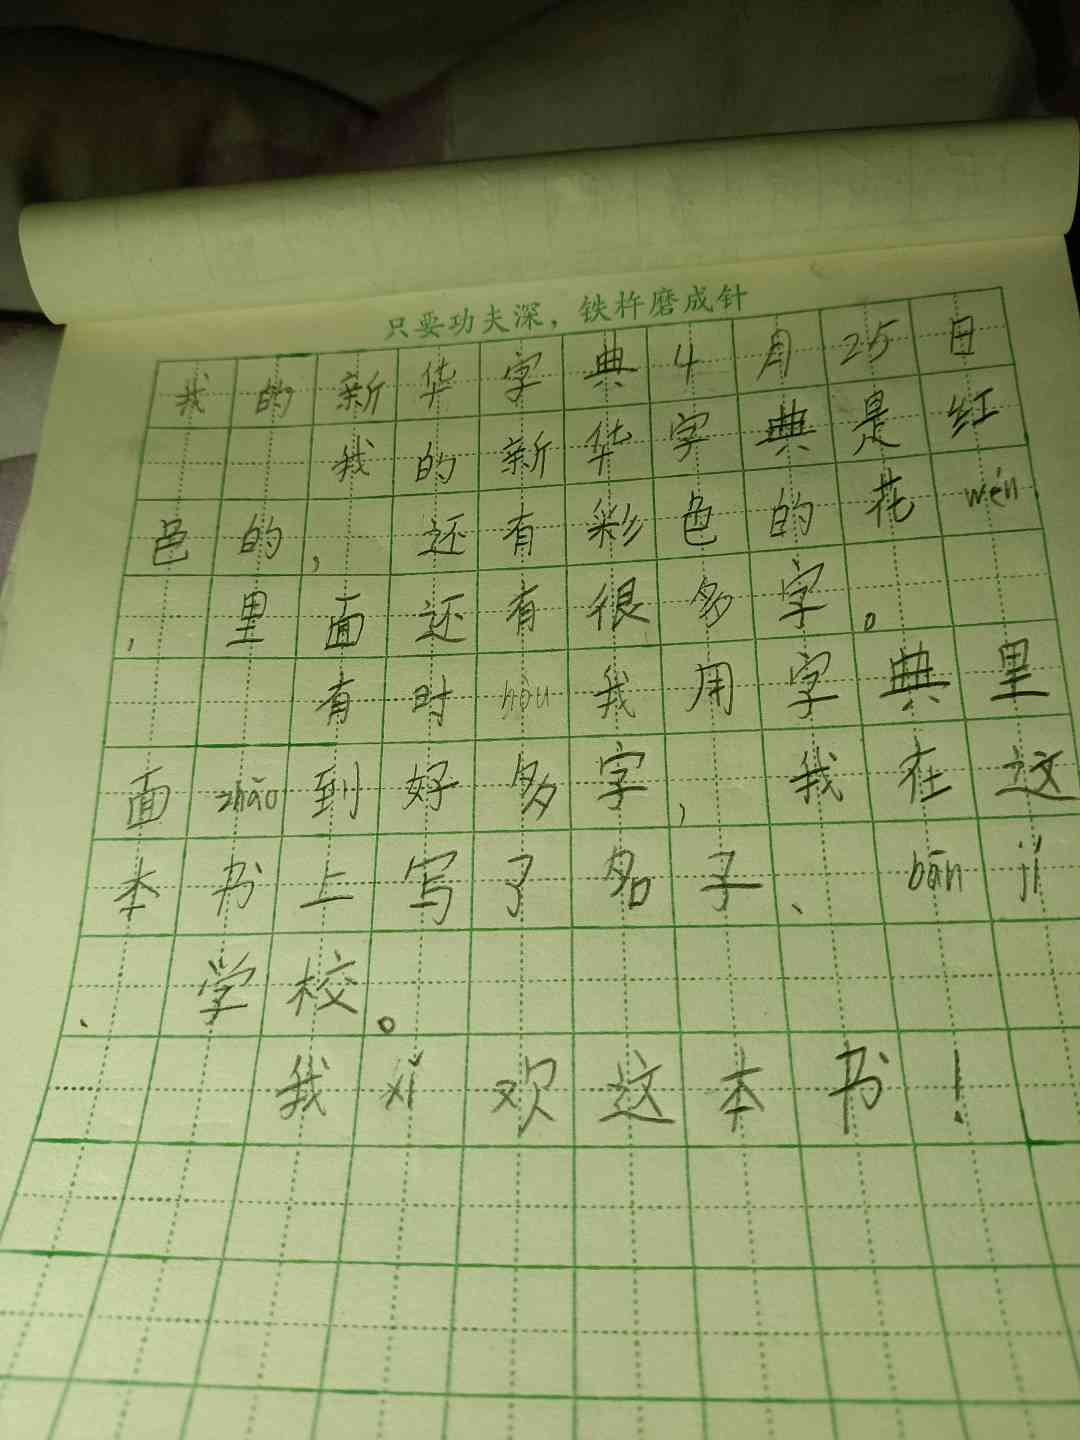 只要功夫深，铁杵磨成针
我的新华字典4月25日
我的新华字典是红
色的，还有彩色的花wén
，里面还有很多字。
有时hòu我用字典里
面zhǎo到好多字，我在这
本书上写了名子、bān jí
、学校。
我xǐ欢这本书！